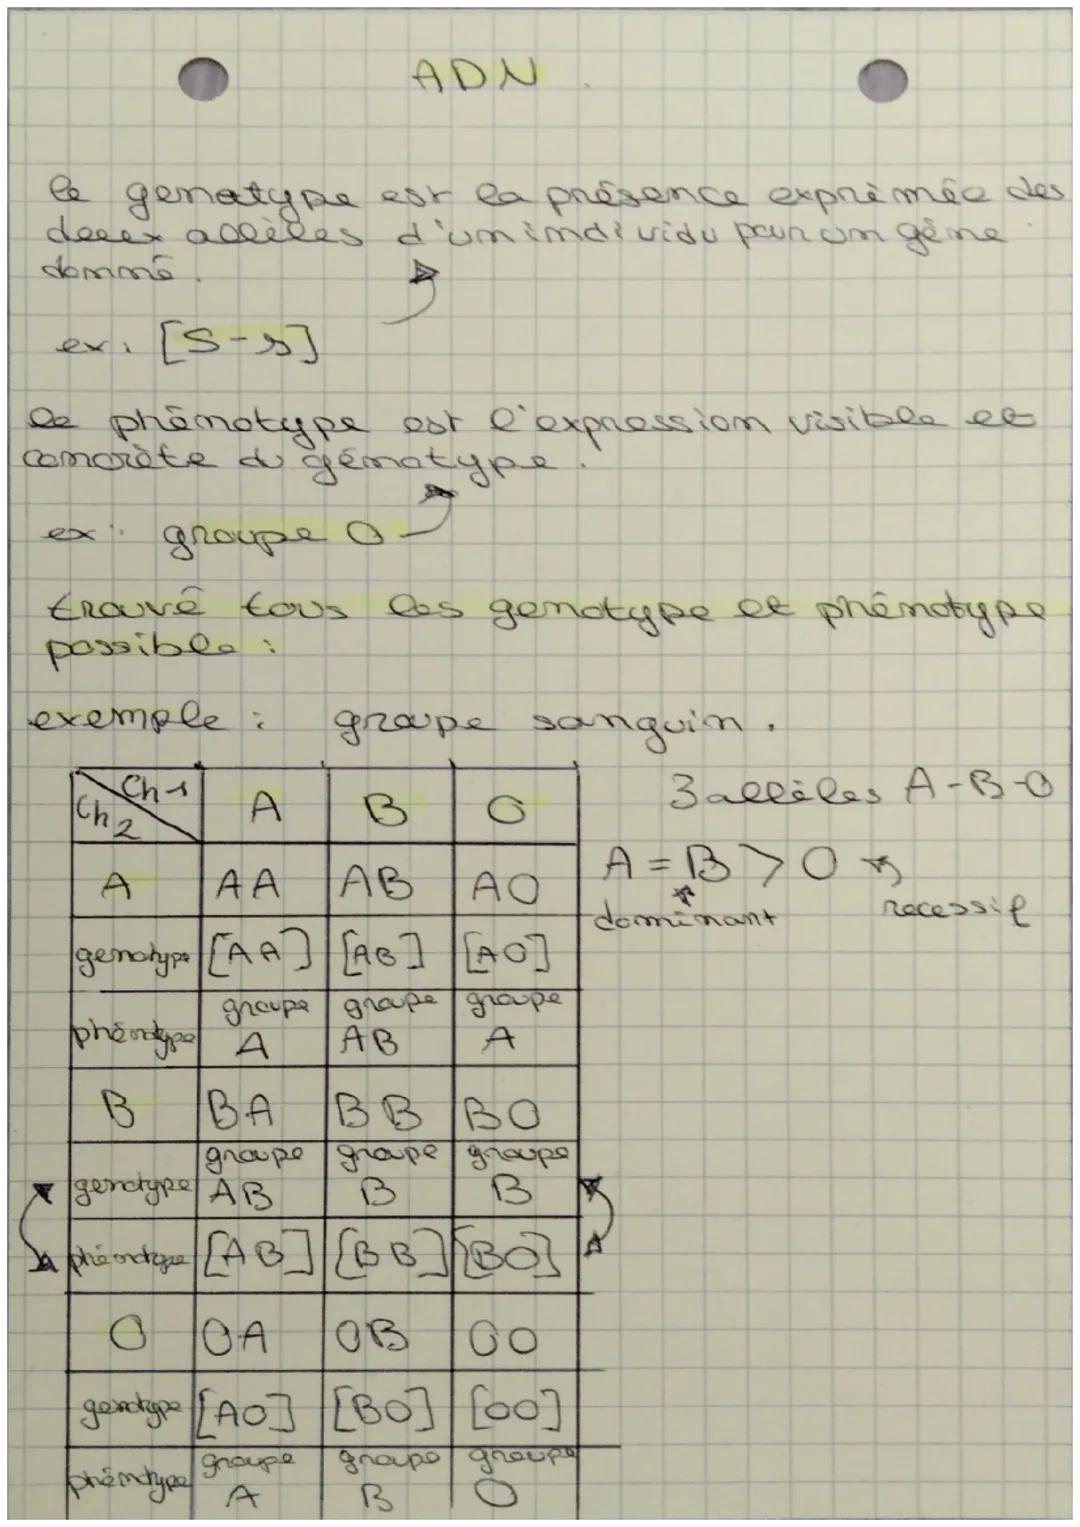 ADN
le genotype est la présence exprimée des
deux allèles d'un individu pour un gène
donné.
ex: [S-s]
le phénotype est l'expression visible et
concrète du génotype.
ex: groupe O
trouvé tous les genotype et phénotype
possible :
exemple : groupe sanguin.
3 allèles A-B-O
A = B > O
dominant recessif
Ch 1 A B O
Ch 2
A AA AB AO
genotype [AA] [AB] [AO]
groupe groupe groupe
phénotype A AB A
B BA BB BO
groupe groupe groupe
genotype AB B B
phénotype [AB] [BB] [BO]
O OA OB OO
genotype [AO] [BO] [OO]
groupe groupe groupe
phénotype A B O